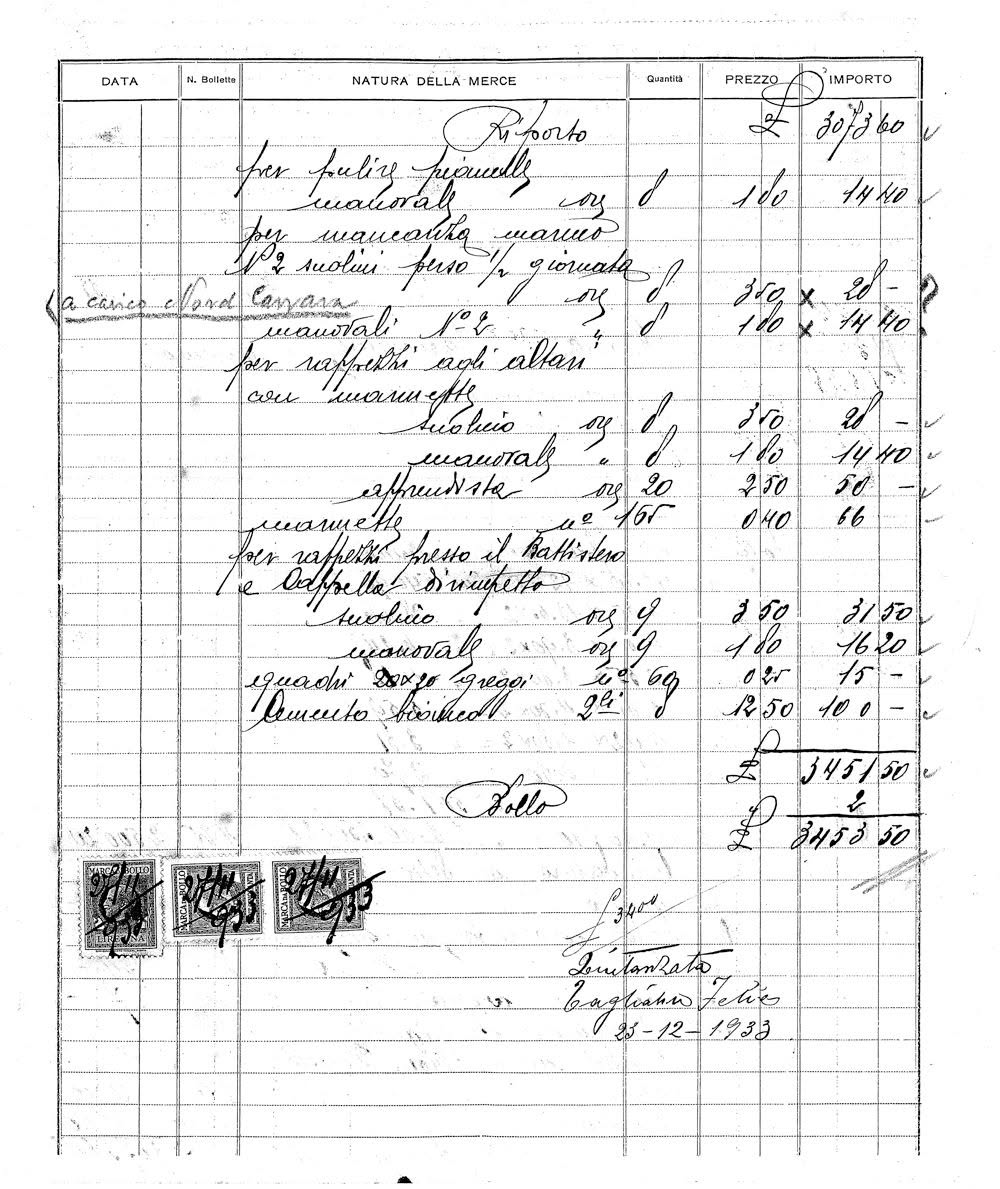 DATA N. Bollette NATURA DELLA MERCE Quantità PREZZO IMPORTO
Riporto £ 3073 60
per pulire pianelle
manovale ore 8 1 80 14 40
per mancanza marmo
N° 2 suolini perso 1/2 giornata
ore 8 3 50 x 28 -
a carico Nord Carrara
manovali N° 2 " 8 1 80 x 14 40
per rappezzi agli altari
con marmette
suolino ore 8 3 50 28 -
manovale " 8 1 80 14 40
apprendista ore 20 2 50 50 -
marmette n° 165 0 40 66
per rappezzi presso il Battistero
e Cappella dirimpetto
suolino ore 9 3 50 31 50
manovale ore 9 1 80 16 20
quadri 20x20 greggi n° 60 0 25 15 -
Cemento bianco 8 12 50 100 -
£ 3451 50
Bollo 2
£ 3453 50
MARCA DA BOLLO
LIRE UNA
27/11
933
MARCA DA BOLLO
27/11
933
MARCA DA BOLLO
27/11
933
£ 3400
Quitanzata
Felice
23-12-1933